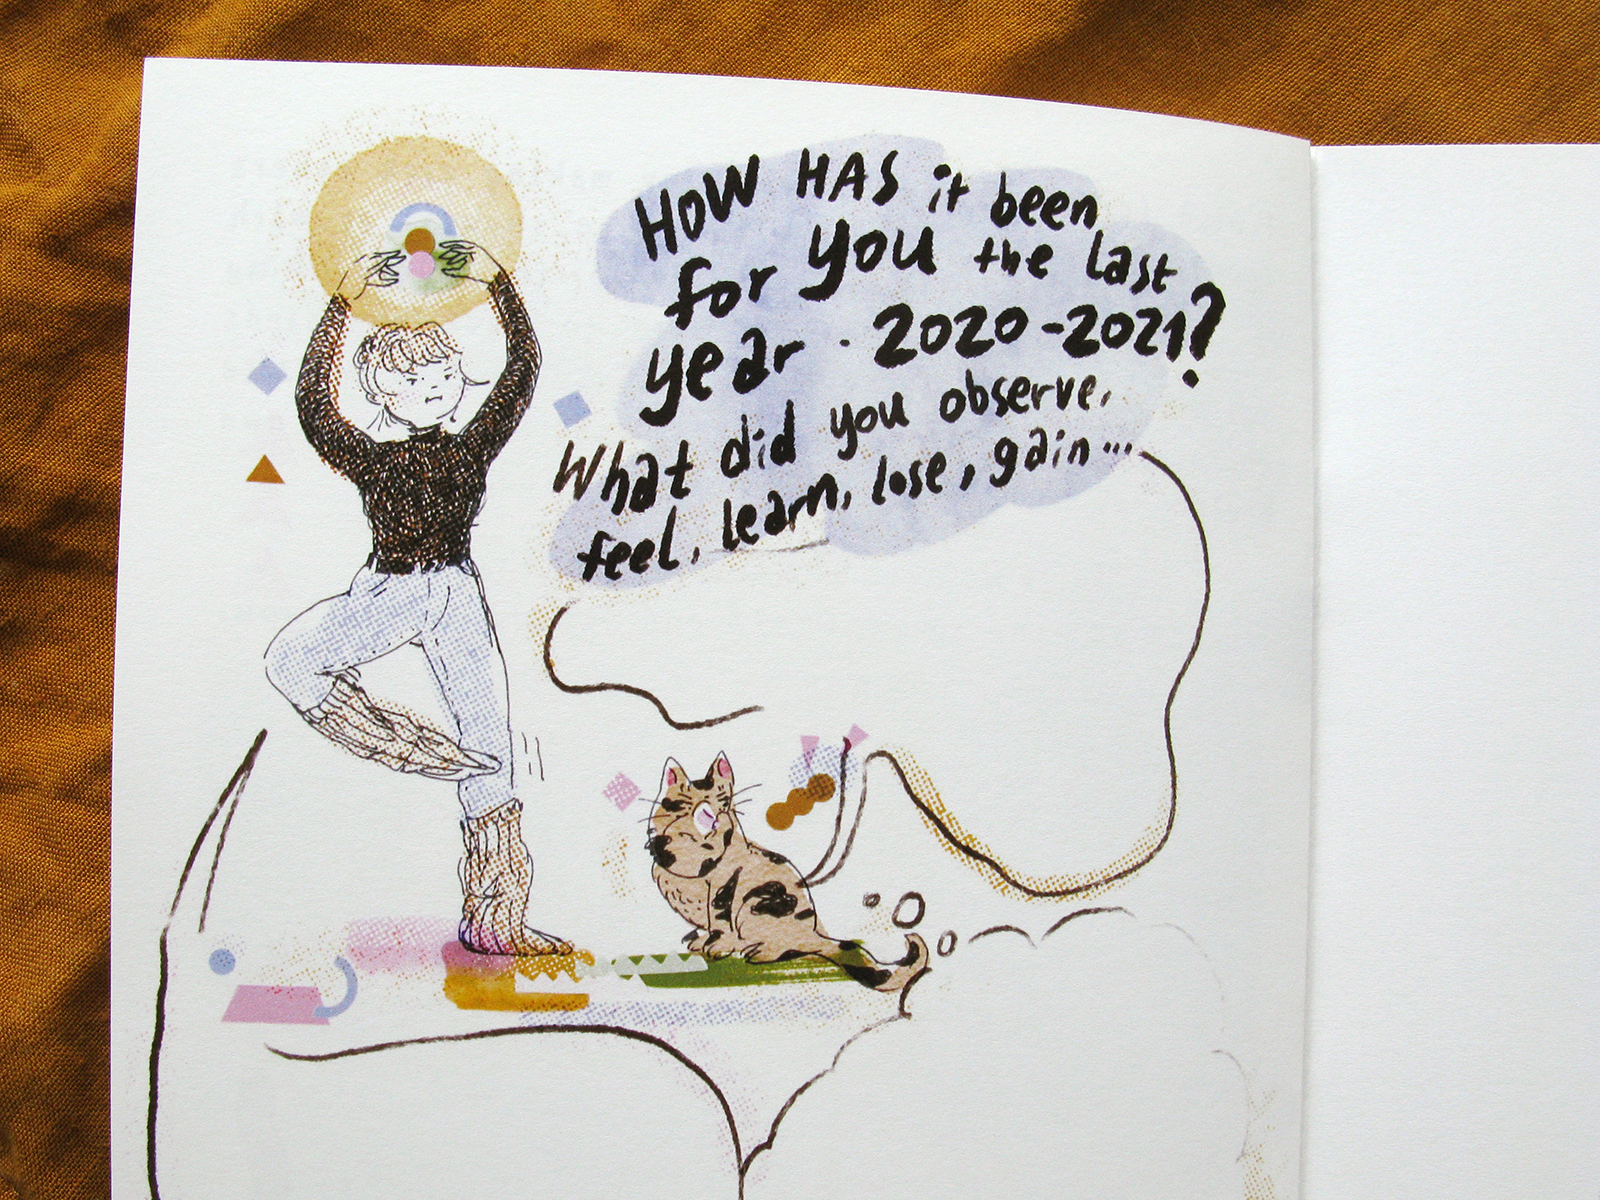 HOW HAS it been
for you the last
year - 2020-2021?
What did you observe,
feel, learn, lose, gain...